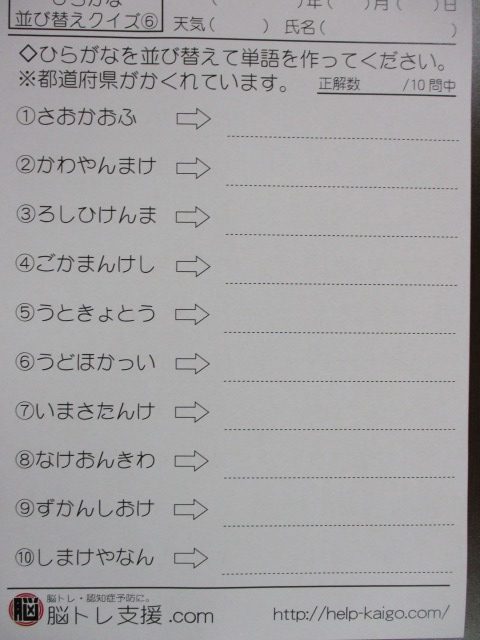 ひらがな
並び替えクイズ⑥
( )年( )月( )日
天気( ) 氏名( )
◇ひらがなを並び替えて単語を作ってください。
※都道府県がかくれています。 正解数 /10問中
①さおかおふ
②かわやんまけ
③ろしひけんま
④ごかまんけし
⑤うときょとう
⑥うどほかっい
⑦いまさたんけ
⑧なけおんきわ
⑨ずかんしおけ
⑩しまけやなん
脳 脳トレ・認知症予防に。
脳トレ支援.com http://help-kaigo.com/